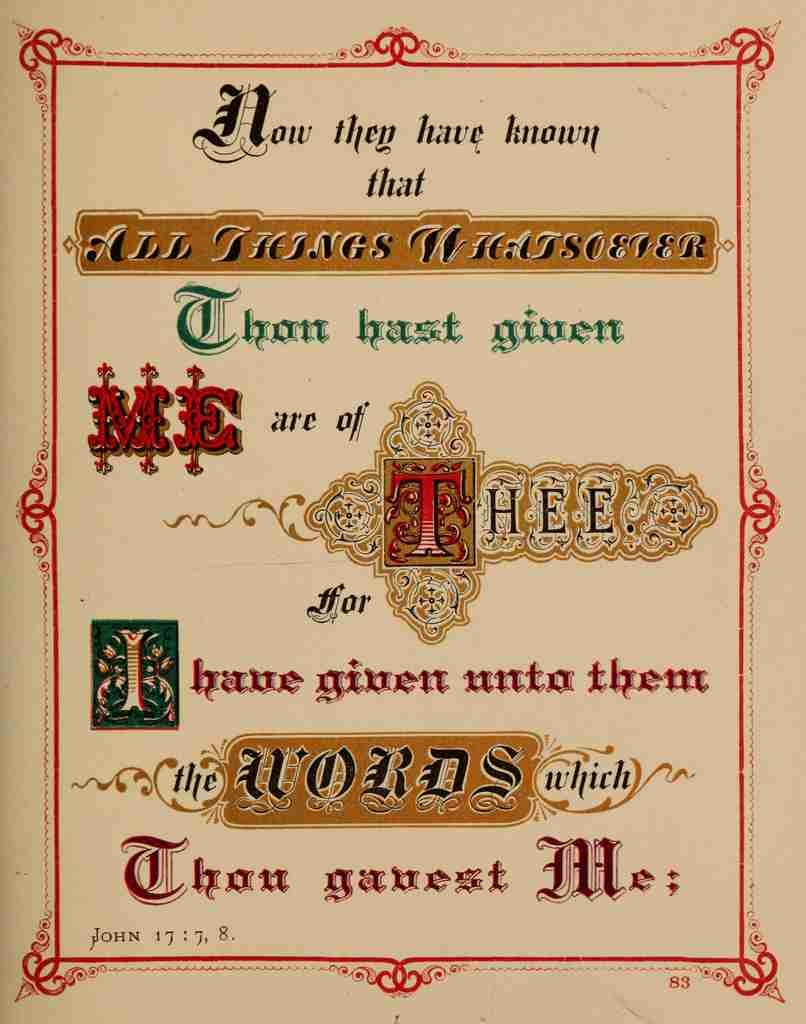 Now they have known
that
ALL THINGS WHATSOEVER
Thou hast given
ME are of
THEE.
for
I have given unto them
the WORDS which
Thou gavest Me;
JOHN 17:7, 8.
83